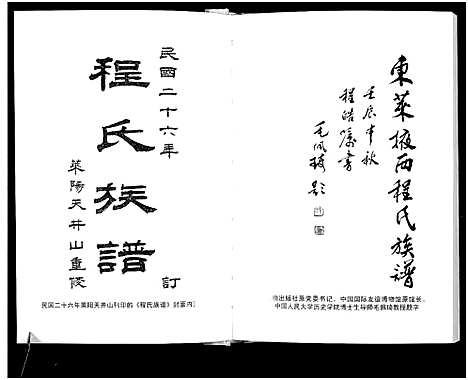 東萊掖西程氏族譜
壬辰中秋
程皓屬書
毛佩琦題
出版社原党委书记、中国国际友谊博物馆原馆长、
中国人民大学历史学院博士生导师毛佩琦教授题字
民國二十六年
程氏族譜
萊陽天井山重修
訂
民国二十六年莱阳天井山刊印的《程氏族谱》封面内